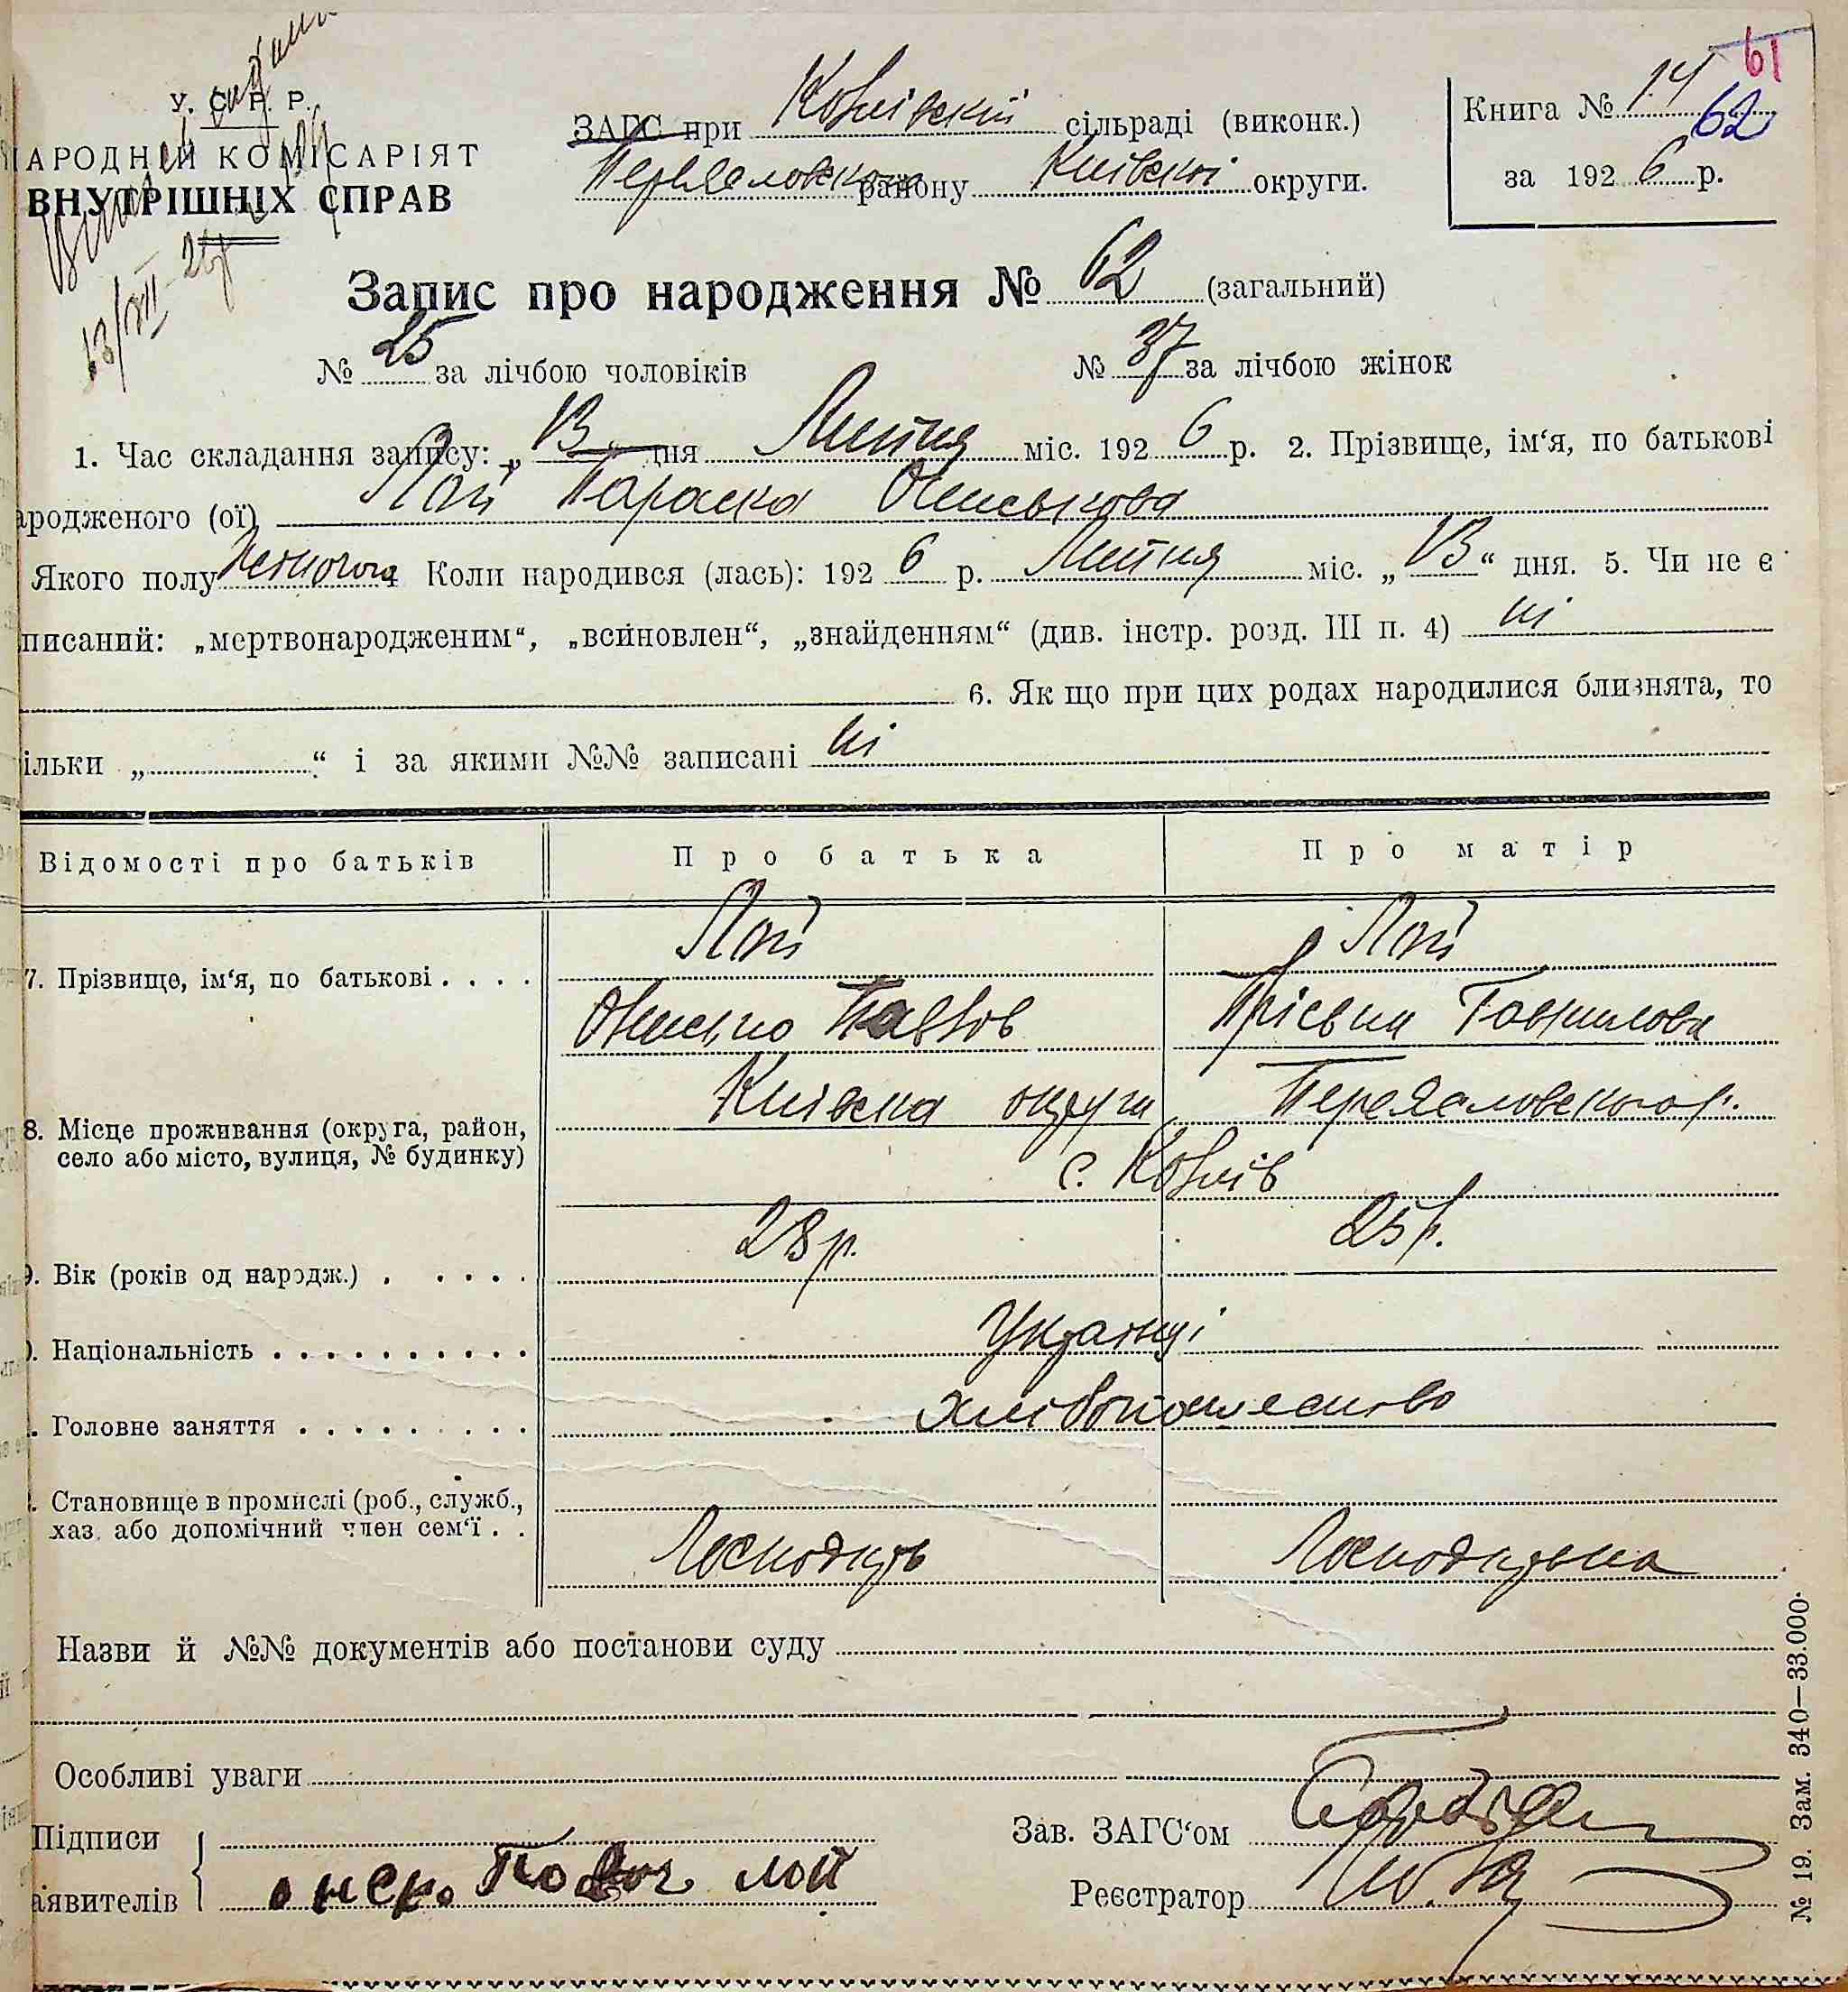 61
У. С. Р. Р.
АРОДНІЙ КОМІСАРІЯТ
ВНУТРІШНІХ СПРАВ
13/XII-26р
ЗАГС при Козлівскій сільраді (виконк.)
Переясловского району Київскої округи.
Книга № 14
62
за 1926 р.
Запис про народження № 62 (загальний)
№ 25 за лічбою чоловіків № 37 за лічбою жінок
1. Час складання запису: „13" дня Липня міс. 1926 р. 2. Прізвище, ім'я, по батькові
ародженого (ої) Лой Параска Ониськова
Якого полу женочого 4 Коли народився (лась): 1926 р. Липня міс. „13" дня. 5. Чи не є
писаний: „мертвонародженим", „всиновлен", „знайденням" (див. інстр. розд. III п. 4) ні
6. Як що при цих родах народилися близнята, то
ільки „ " і за якими №№ записані ні
Відомості про батьків Про батька Про матір
Лой Лой
7. Прізвище, ім'я, по батькові . . . .
Онисько Павлов Пріська Гаврилова
Київска округа Переясловского р.
8. Місце проживання (округа, район,
село або місто, вулиця, № будинку)
с. Козлів
28 р. 25 р.
9. Вік (років од народж.) . . . . .
Національність . . . . . . . . . . Українці
Головне заняття . . . . . . . . . хлібопашество
. Становище в промислі (роб., служб.,
хаз. або допомічний член сем'ї . .
Господарь Господарька
Назви й №№ документів або постанови суду
Особливі уваги
Підписи
аявителів
Лой
Зав. ЗАГС'ом
Реєстратор
№ 19. Зам. 340—33.000.